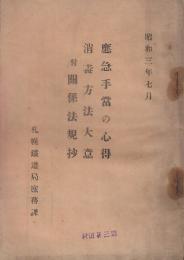 昭和三年七月
應急手當の心得
消毒方法大意
附關係法規抄
札幌鐵道局庶務課